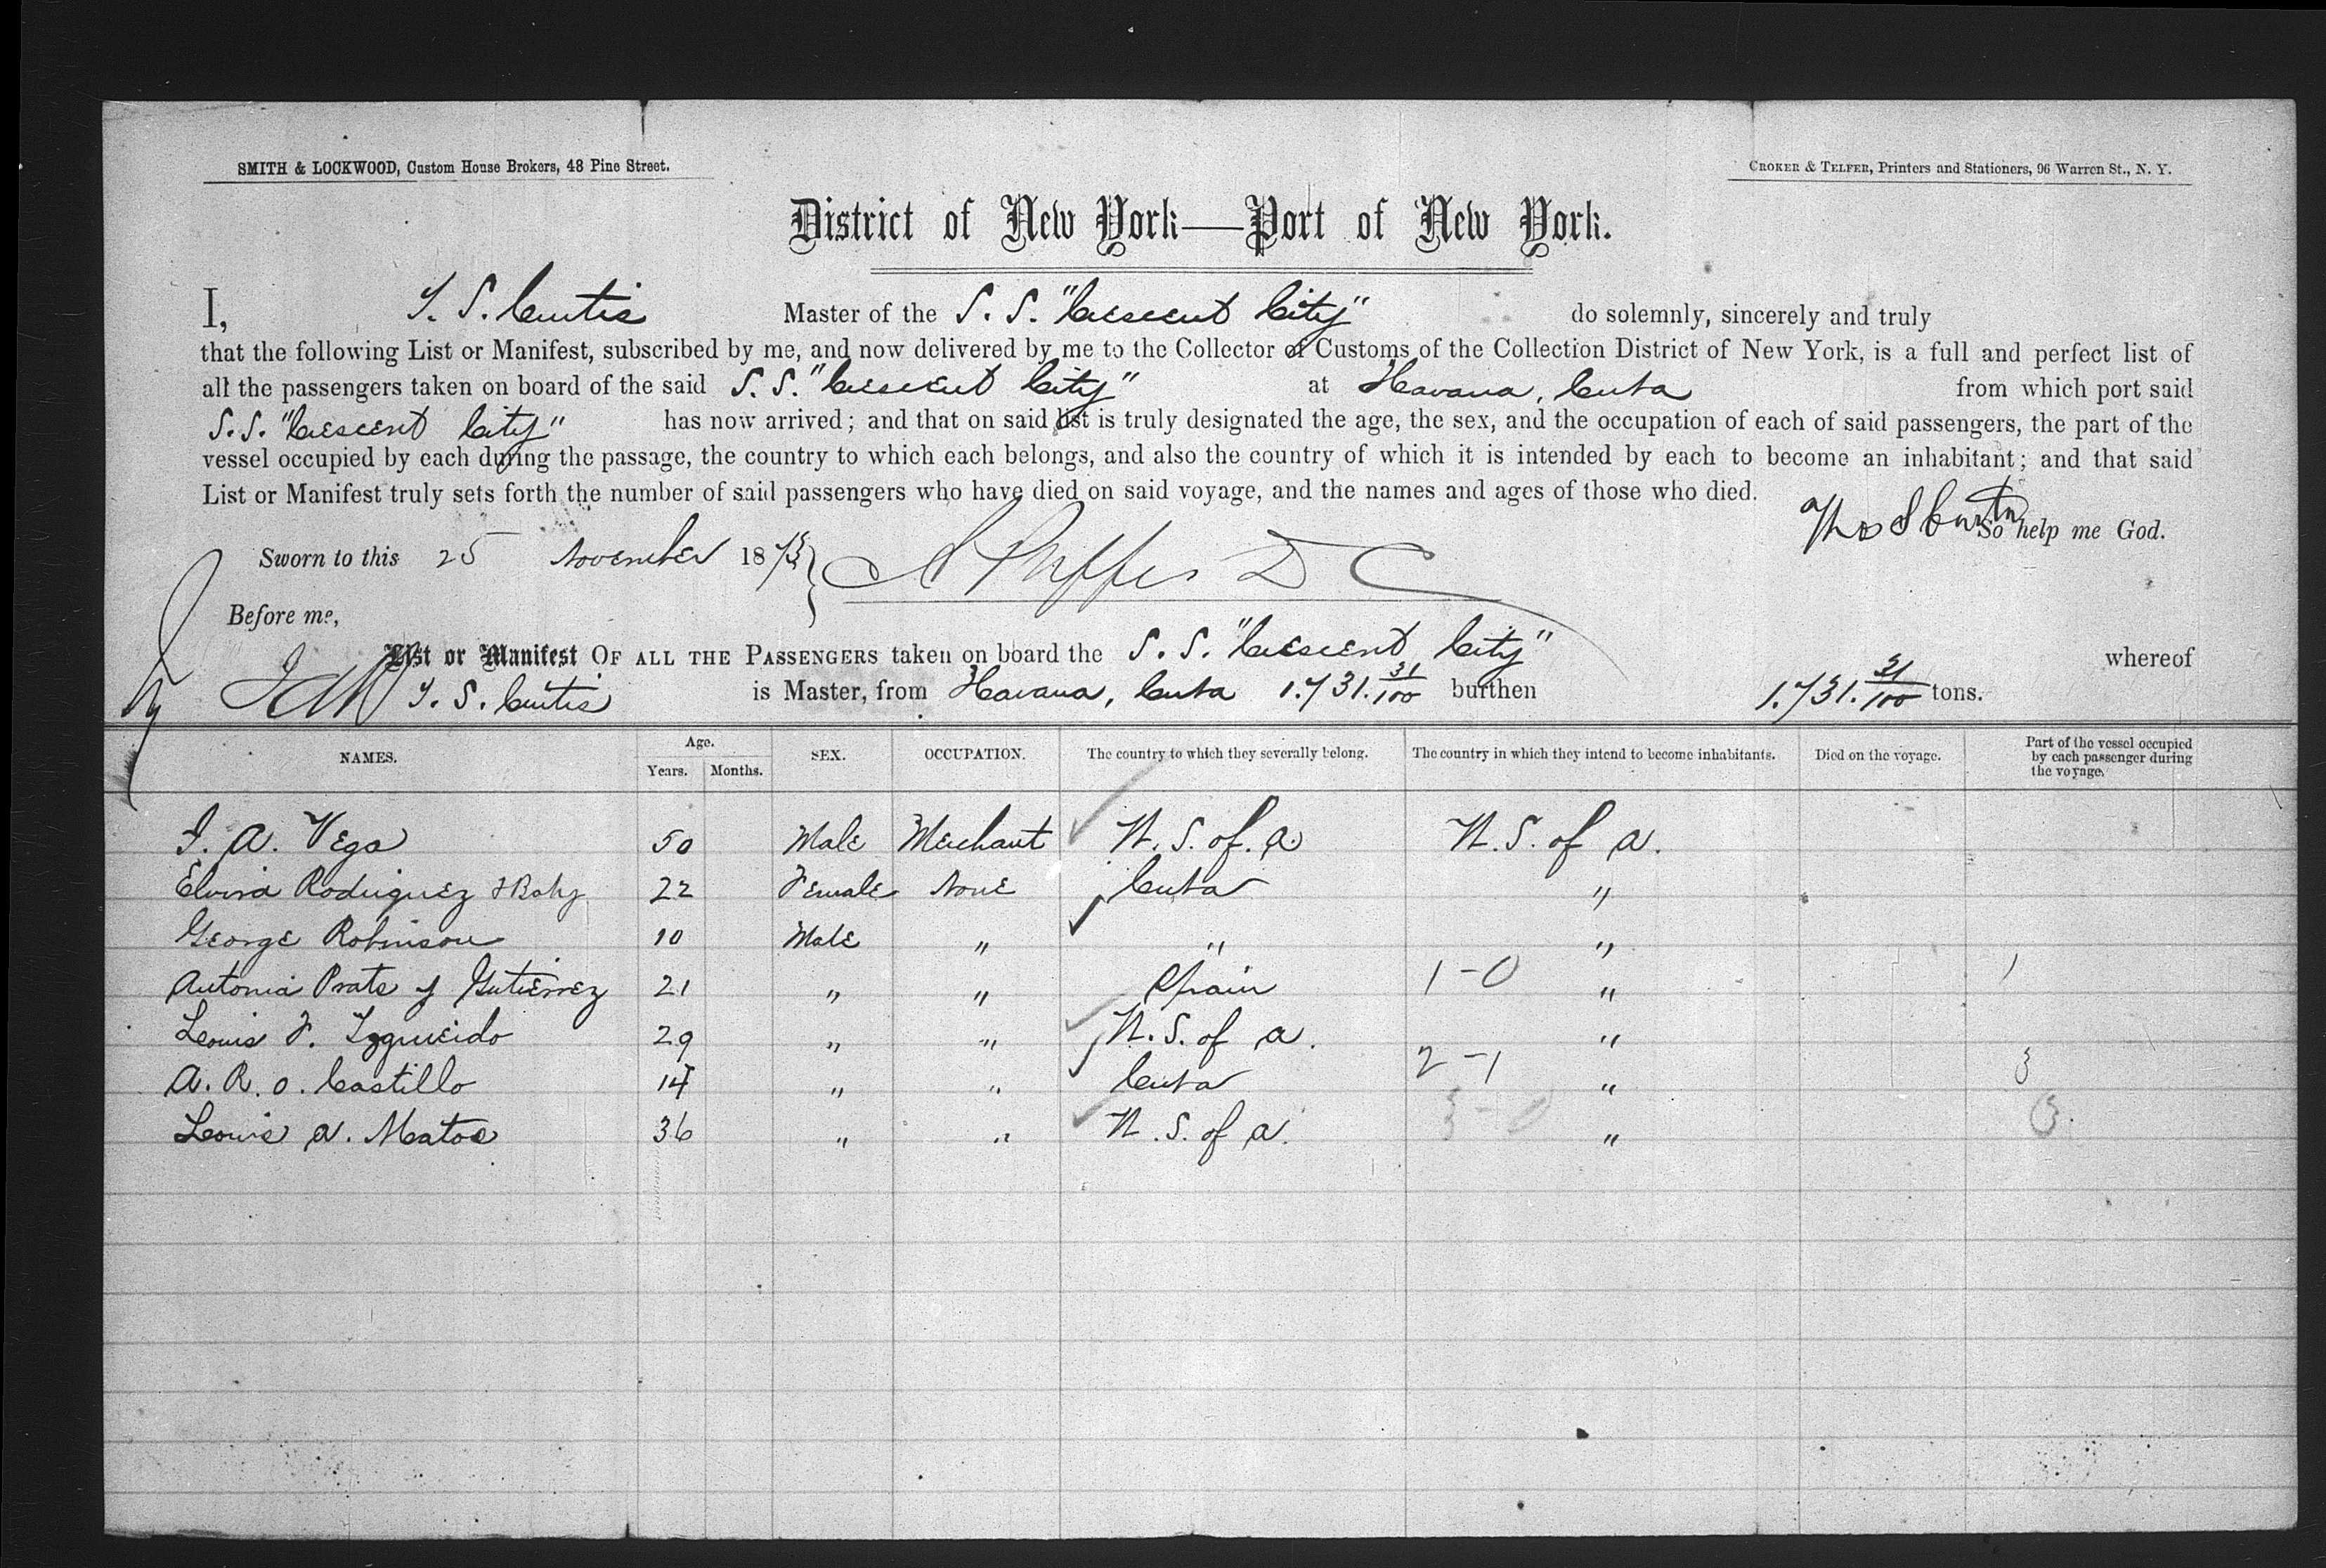 SMITH & LOCKWOOD, Custom House Brokers, 48 Pine Street.
CROKER & TELFER, Printers and Stationers, 96 Warren St., N. Y.
District of New York—Port of New York.
I, T. S. Curtis Master of the S. S. "Crescent City" do solemnly, sincerely and truly
that the following List or Manifest, subscribed by me, and now delivered by me to the Collector of Customs of the Collection District of New York, is a full and perfect list of
all the passengers taken on board of the said S. S. "Crescent City" at Havana, Cuba from which port said
S. S. "Crescent City" has now arrived; and that on said list is truly designated the age, the sex, and the occupation of each of said passengers, the part of the
vessel occupied by each during the passage, the country to which each belongs, and also the country of which it is intended by each to become an inhabitant; and that said
List or Manifest truly sets forth the number of said passengers who have died on said voyage, and the names and ages of those who died.
Thos S Curtis So help me God.
Sworn to this 25 November 187
Before me,
List or Manifest OF ALL THE PASSENGERS taken on board the S. S. "Crescent City" whereof
T. S. Curtis is Master, from Havana, Cuba 1.731.31/100 burthen 1.731.31/100 tons.
NAMES. Age. Years. Months. SEX. OCCUPATION. The country to which they severally belong. The country in which they intend to become inhabitants. Died on the voyage. Part of the vessel occupied by each passenger during the voyage.
I. A. Vega 50 Male Merchant U. S. of. A U. S. of A.
Elvira Rodriguez & Baby 22 Female None Cuba "
George Robinson 10 Male " " "
Antonia Prats y Gutierrez 21 " " Spain 1-0 " 1
Louis F. Izqueido 29 " " U. S. of A. "
A. R. o. Castillo 14 " " Cuba 2-1 " 3
Louis A. Matos 36 " " U. S. of A. 3-0 " 3